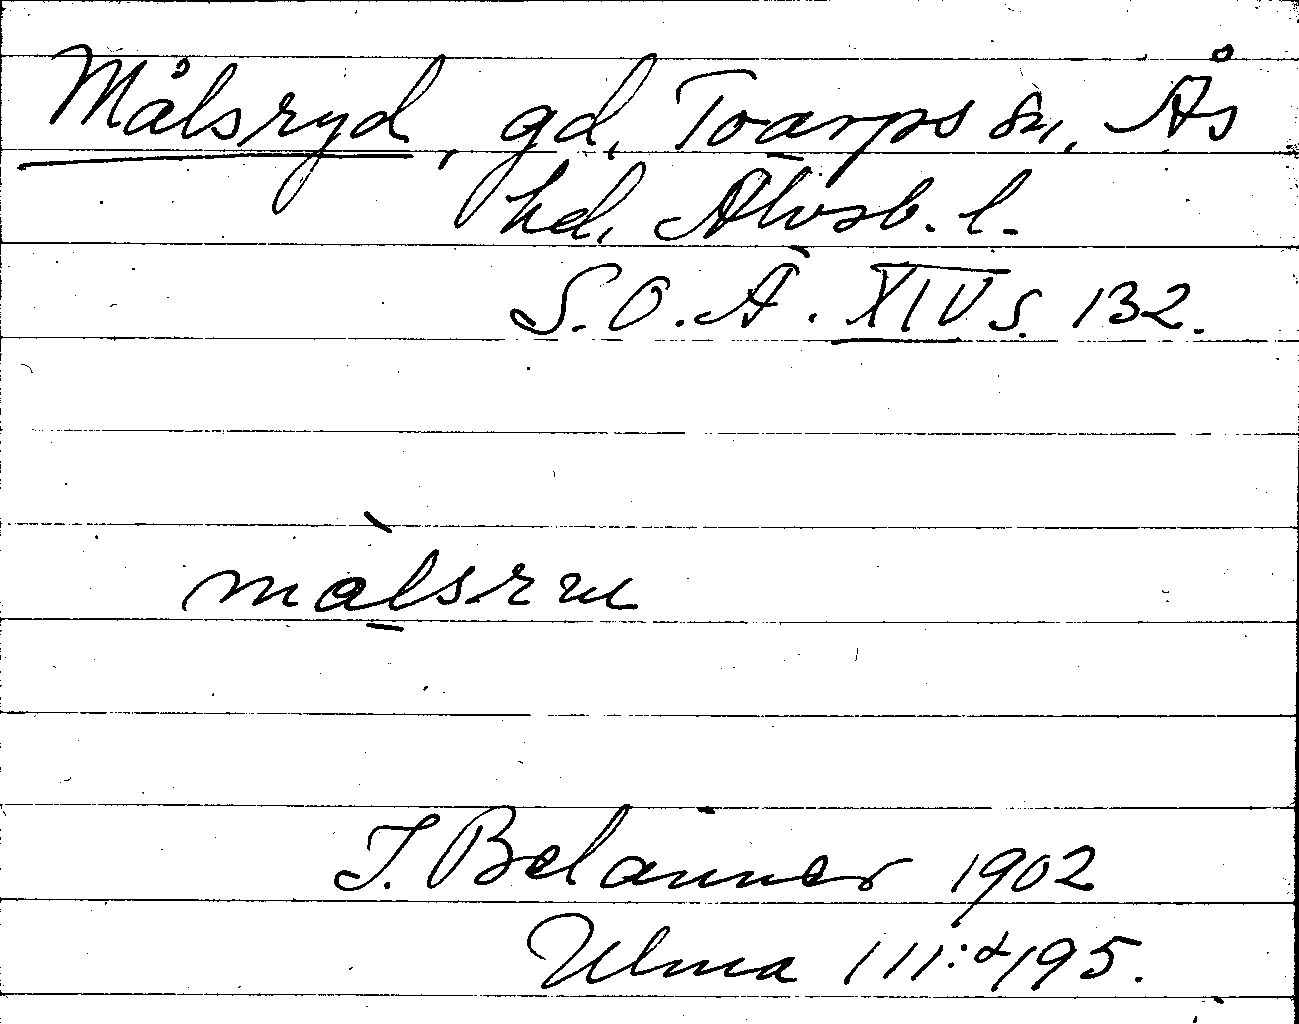 Målsryd, gd, Toarps sn, Ås
hd, Älvsb. l.
S.O.Ä. XIV s. 132.
målsrıu
J. Belanner 1902
Ulma 111: